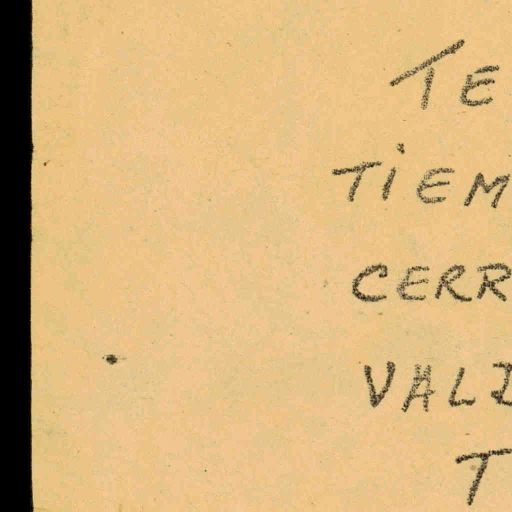 TE
TiEM
CERR
VALI
T